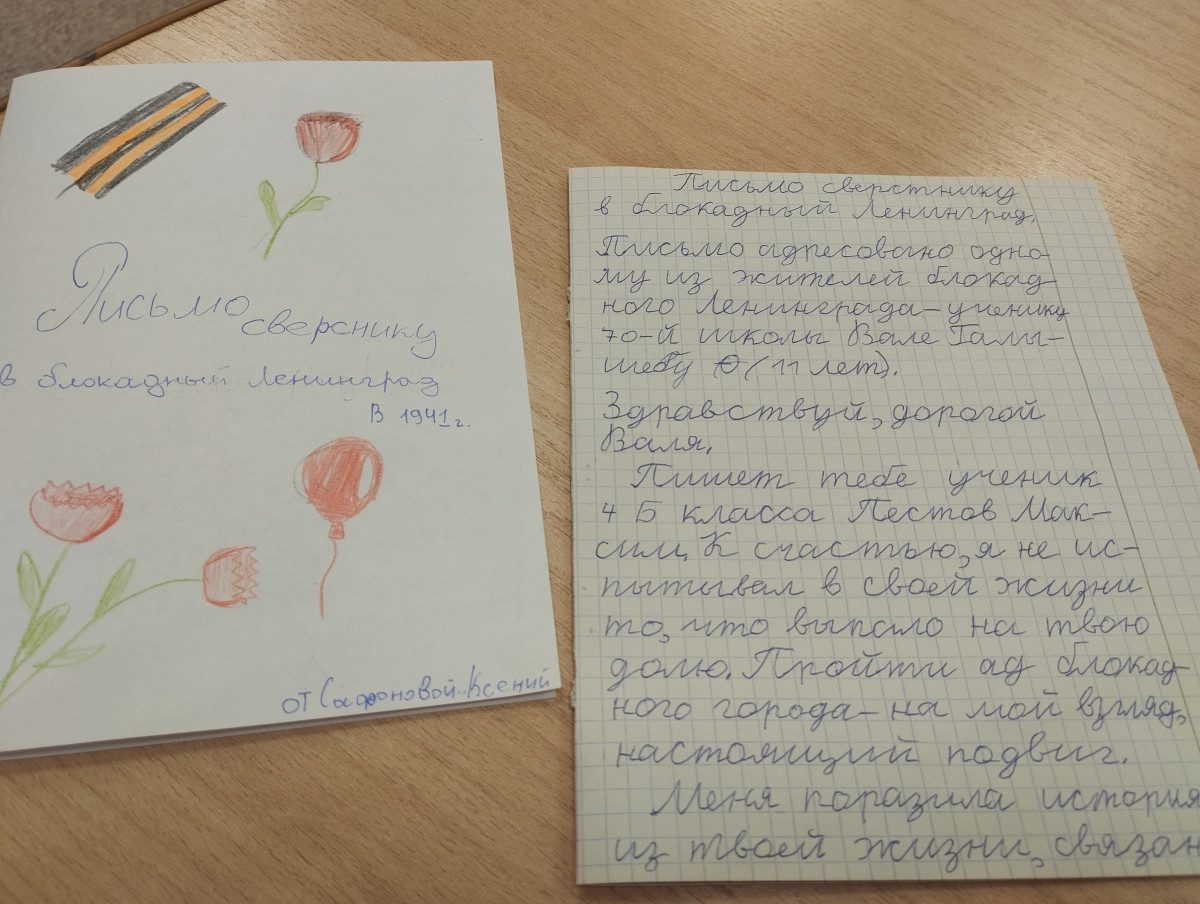 Письмо
сверснику
в блокадный Ленинград
в 1941 г.
от Сафоновой Ксений
Письмо сверстнику
в блокадный Ленинград.
Письмо адресовано одно-
му из жителей блокад-
ного Ленинграда – ученику
70-й школы Вале Галы-
шеву (11 лет).
Здравствуй, дорогой
Валя.
Пишет тебе ученик
4 Б класса Пестов Мак-
сим. К счастью, я не ис-
пытывал в своей жизни
то, что выпало на твою
долю. Пройти ад блокад
ного города – на мой взгляд,
настоящий подвиг.
Меня поразила история
из твоей жизни, связан